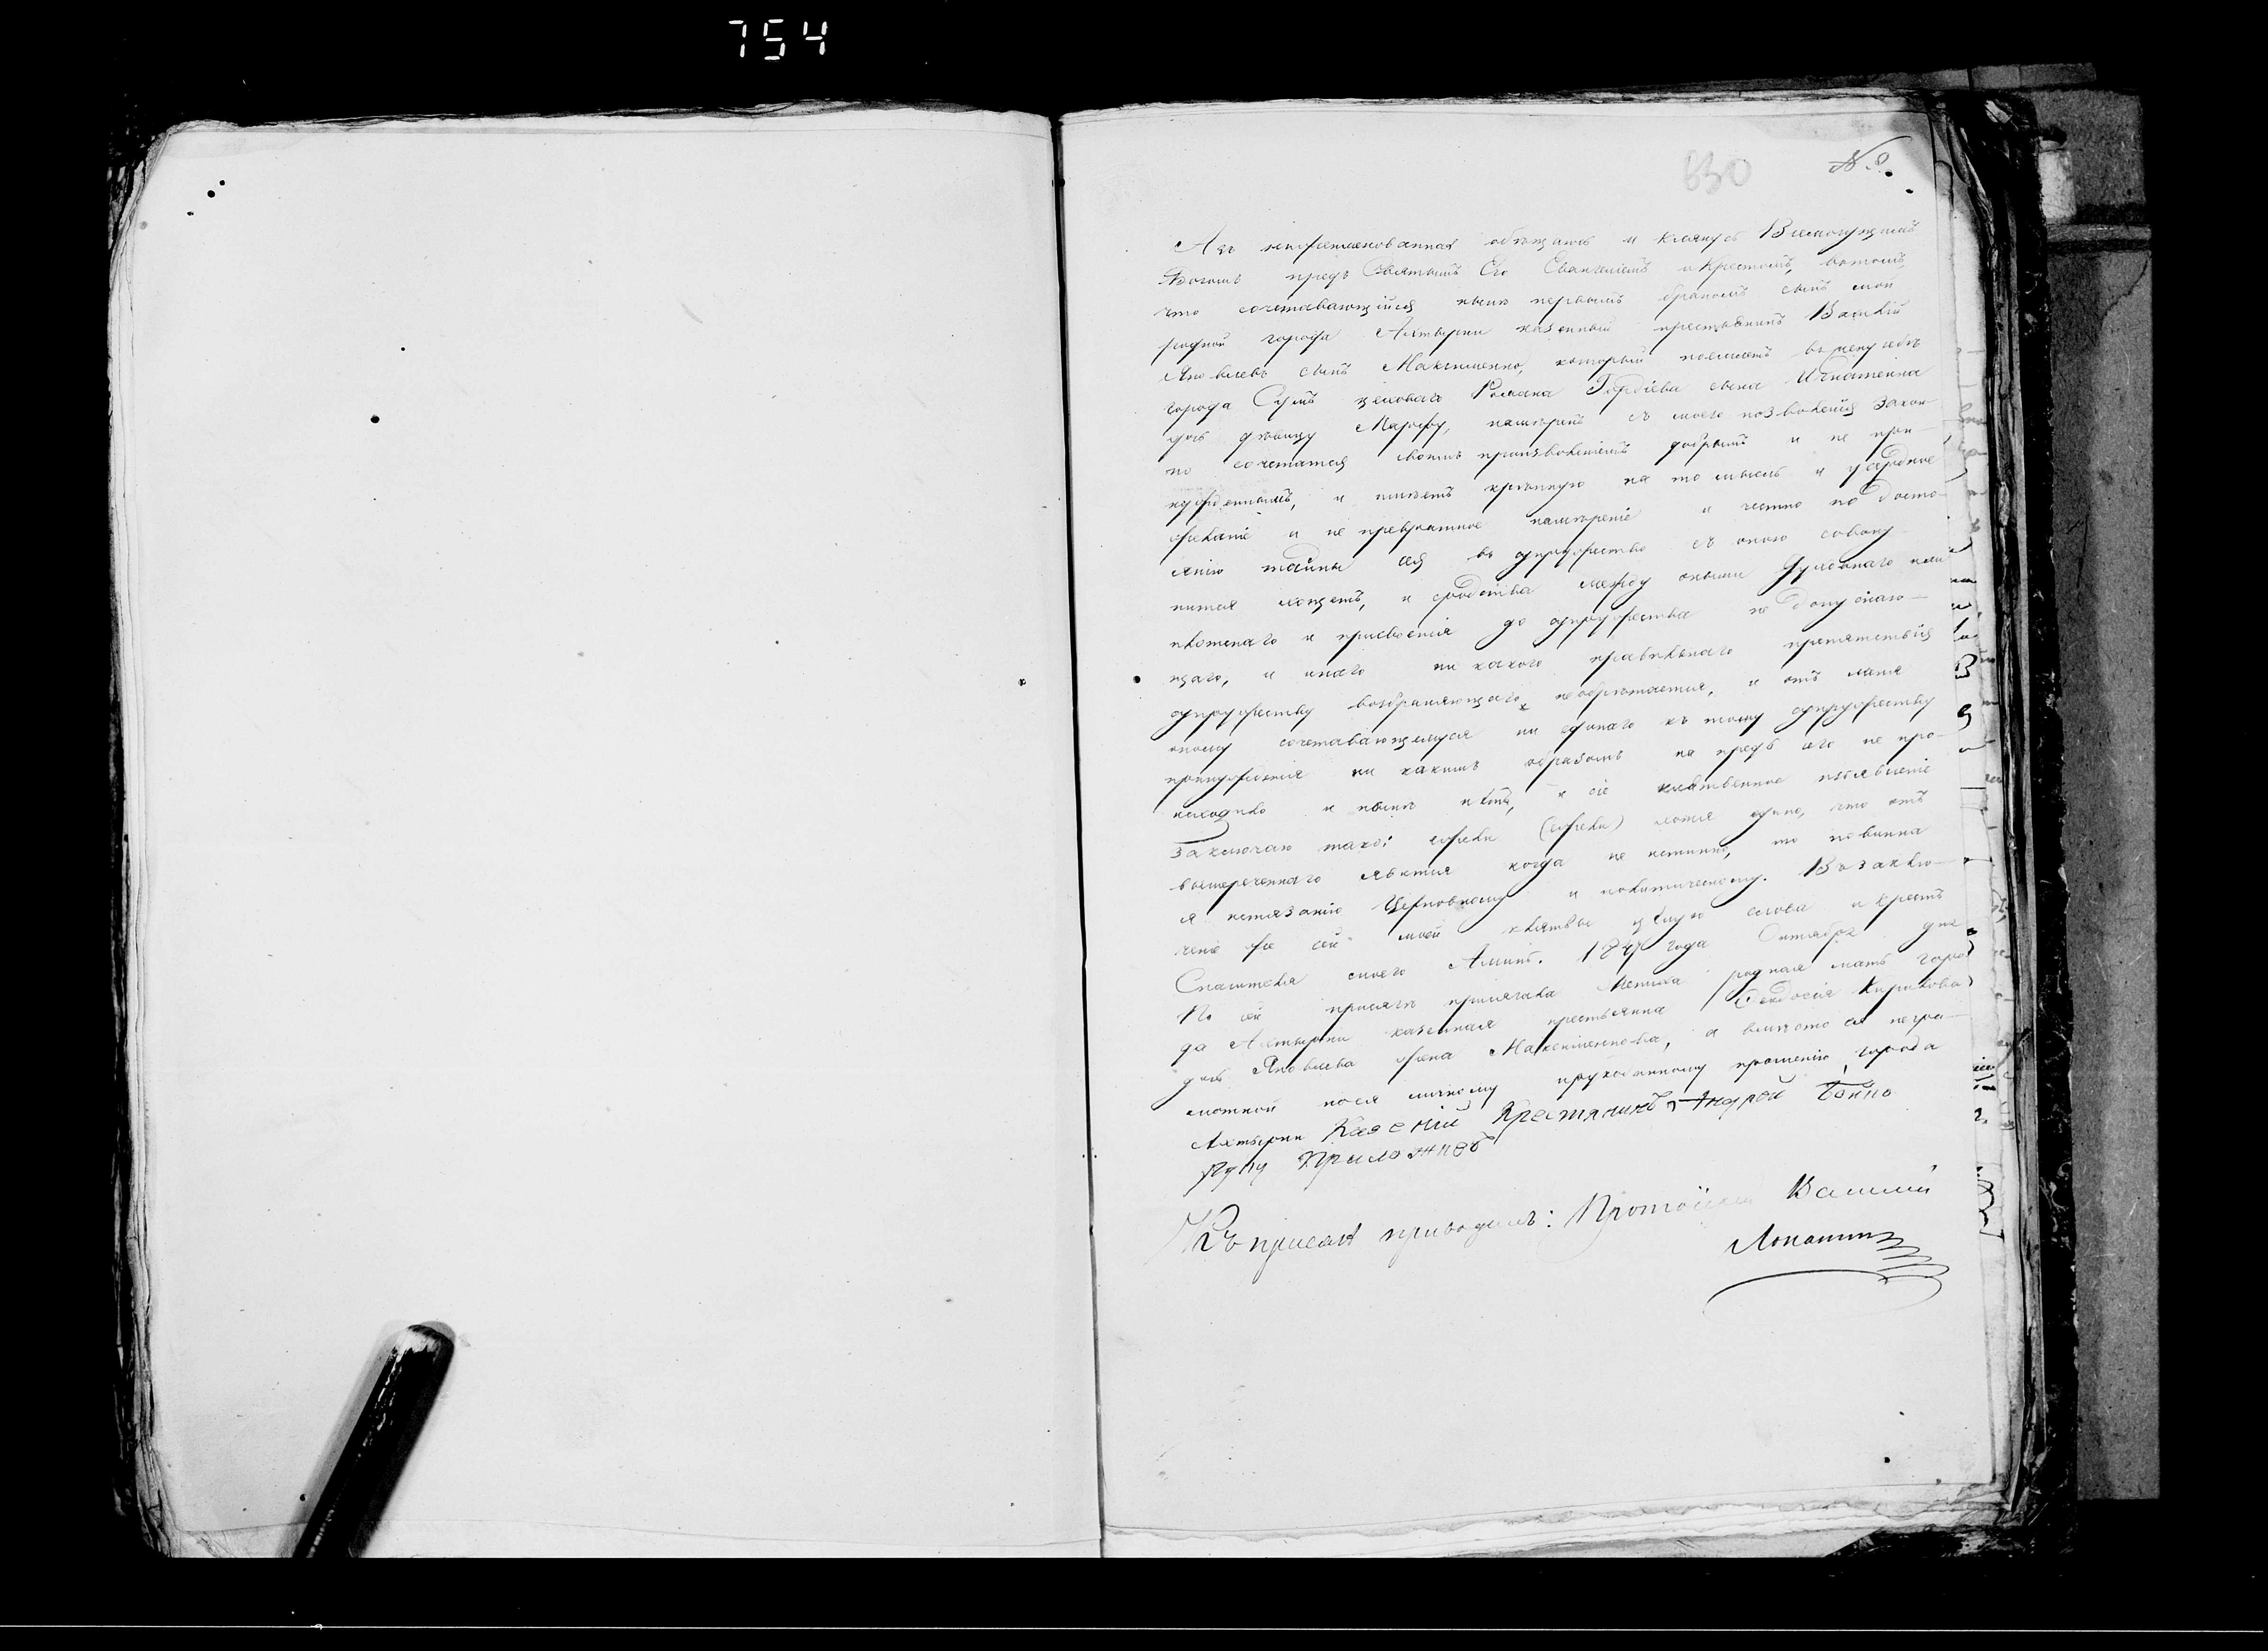 754
630
№ 8.
Азъ нижеименованная обѣщаюсь и клянусь Всемогущимъ
Богомъ предъ Святымъ Его Евангеліемъ и Крестомъ, вътомъ,
что сочетавающійся нынѣ первымъ бракомъ сынъ мой
родной города Ахтырки казенный крестьянинъ Василій
Яковлевъ сынъ Максименко, который поемлетъ въ жену себѣ
города Сумъ цеховаго Романа Гордіева сына Игнатенка
дочь дѣвицу Марфу, намѣренъ съ моего позволенія закон-
но сочетатися своимъ произволеніемъ добрымъ и не при-
нужденнымъ, и имѣетъ крѣпкую на то мысль и усердное
желаніе и не превратное намѣреніе и честно по досто-
янію тайны сея въ супружество съ оною совоку
питися хощетъ, и сродства между оными духовнаго или
плотенаго и присвоенія до супружества не допускаю-
щаго, и инаго ни какого правильнаго препятствія
супружеству возбраняющаго не обрѣтается, и отъ меня
оному сочетавающемуся ни единаго къ тому супружеству
принужденія ни какимъ образомъ на предъ его не про-
исходило и нынѣ нѣтъ, и сіе клятвенное изъявленіе
заключаю тако: ежели (ежели) хотя едино, что отъ
вышереченнаго явится когда не истинно, то повинна
я истязанію Церковному и политическому. Въ заклю-
ченіе же сей моей клятвы цѣлую слова и крестъ
Спасителя моего Аминь. 184 года Октября дня
По сей присягѣ присягала жениха родная мать горо
да Ахтырки казенная крестьянка Феодосія Кирилова
дочь Яковлева жена Максименкова, а вмѣсто ея негра-
мотной посля личному рукоданному прошенію города
Ахтырки Казеній Крестянинъ Андрой Бойко
Руку Приложивъ
Къ присягѣ приводилъ: Протоіерей Василій
Лопатинъ